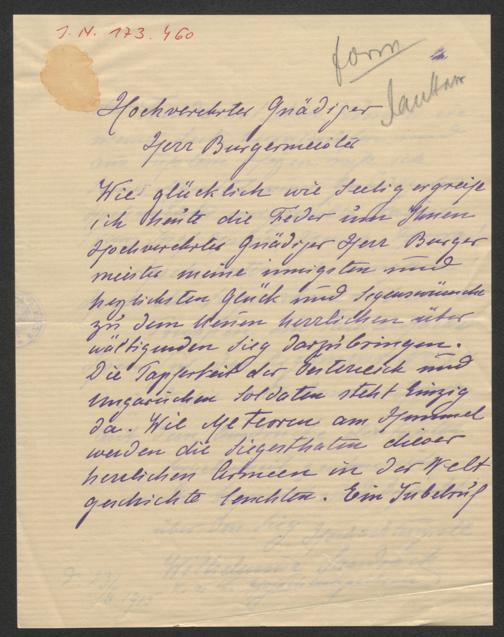 J. N. 173.460
form
Hochverehrter Gnädiger
Herr Burgermeister
Wie glücklich wie Seelig ergreife
ich heute die Feder um Ihnen
Hochverehrter Gnädiger Herr Burger
meister meine innigsten und
herzlichsten Glück und Segenswünsche
zu dem Neuen herrlichen über
wältigenden Sieg darzubringen.
Die Tapferkeit der Oesterreich und
Ungarischen Soldaten steht Einzig
da. Wie Meteoren am Himmel
werden die Siegesthaten dieser
herrlichen Armeen in der Welt
geschichte leuchten. Ein Jubelruf